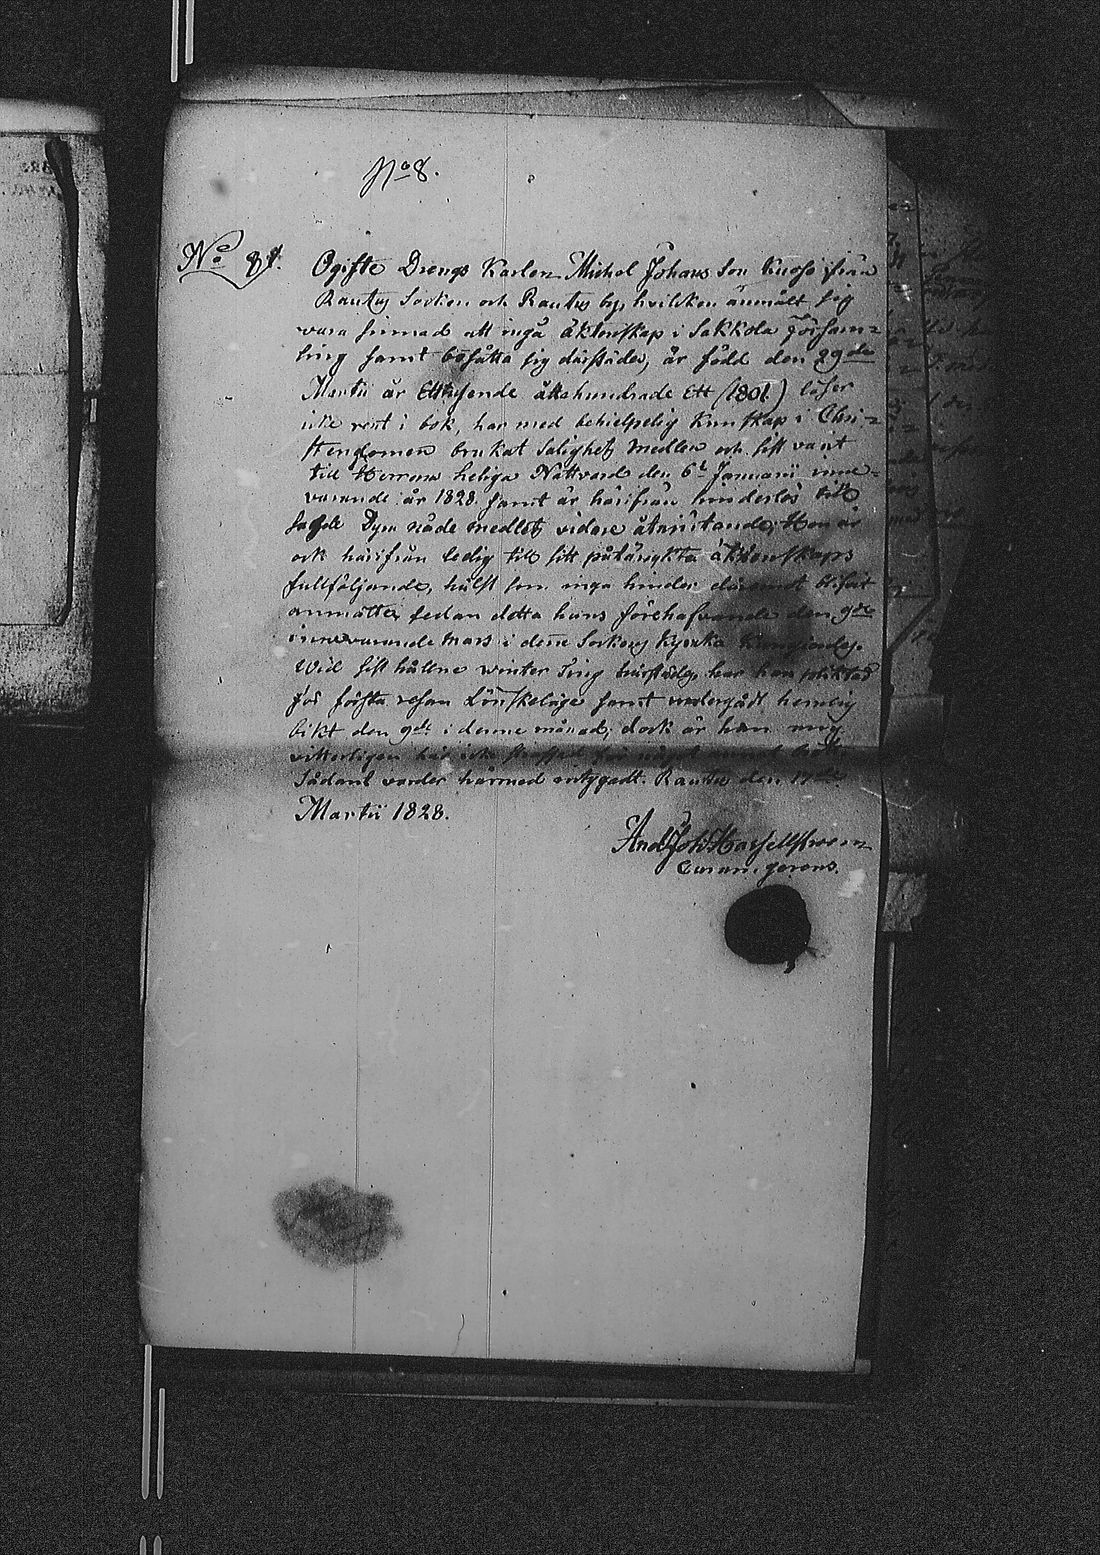 No 8.
No 81.
Ogifte Drengs Karlen Michel Johans Son Kuosa från
Rautus Socken och Rautus by, hvilken anmält sig
vara sinnad att ingå äktenskap i Sakkola Församling
samt bosätta sig därstädes, är född den 29de
Martii år Ettusende åttahundrade Ett (1801) läser
icke rent i bok, har med behielpelig Kunskap i Christendomen
brukat Salighets medlen och sist varit
till Herrens heliga Nattvard den 6t Januarii innevarande
år 1828 samt är härifrån hinderlös till
sagde Dyra nåde medlets vidare åtnjutande; Han är
ock härifrån ledig till sitt påtänkta äktenskaps
fullföljande, hälst som inga hinder däremot blifvit
anmälte, sedan detta hans förehafvande den 9de
innevarande Mars i denne Sockens Kyrka
Wid sist hållne winter Ting härstädes har han pliktad
för första resan Lönskeläge samt undergådt hemlig
bikt den 9de i denne månad, dock är han mig
vitterligen här icke
Sådant varder härmed intygadt. Rautus den 17de
Martii 1828.
And Joh
Curam gerens.